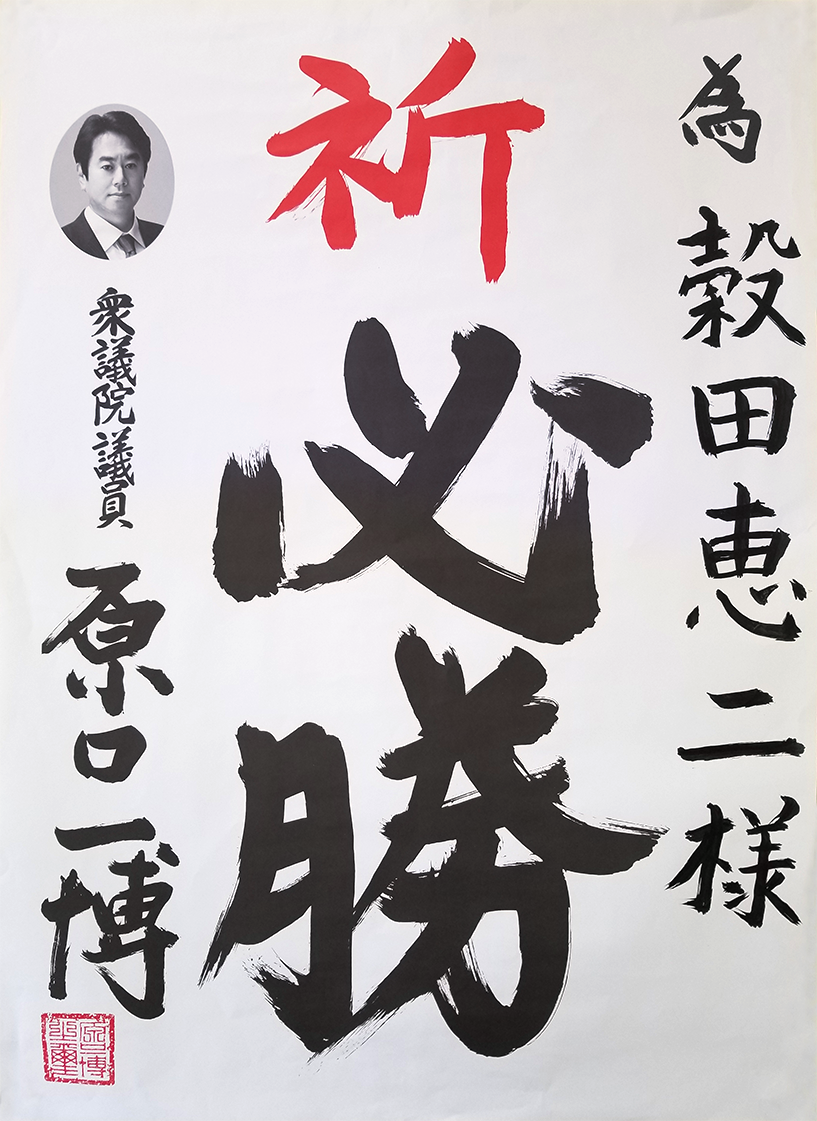 為 穀田恵二様
祈必勝
衆議院議員 原口一博